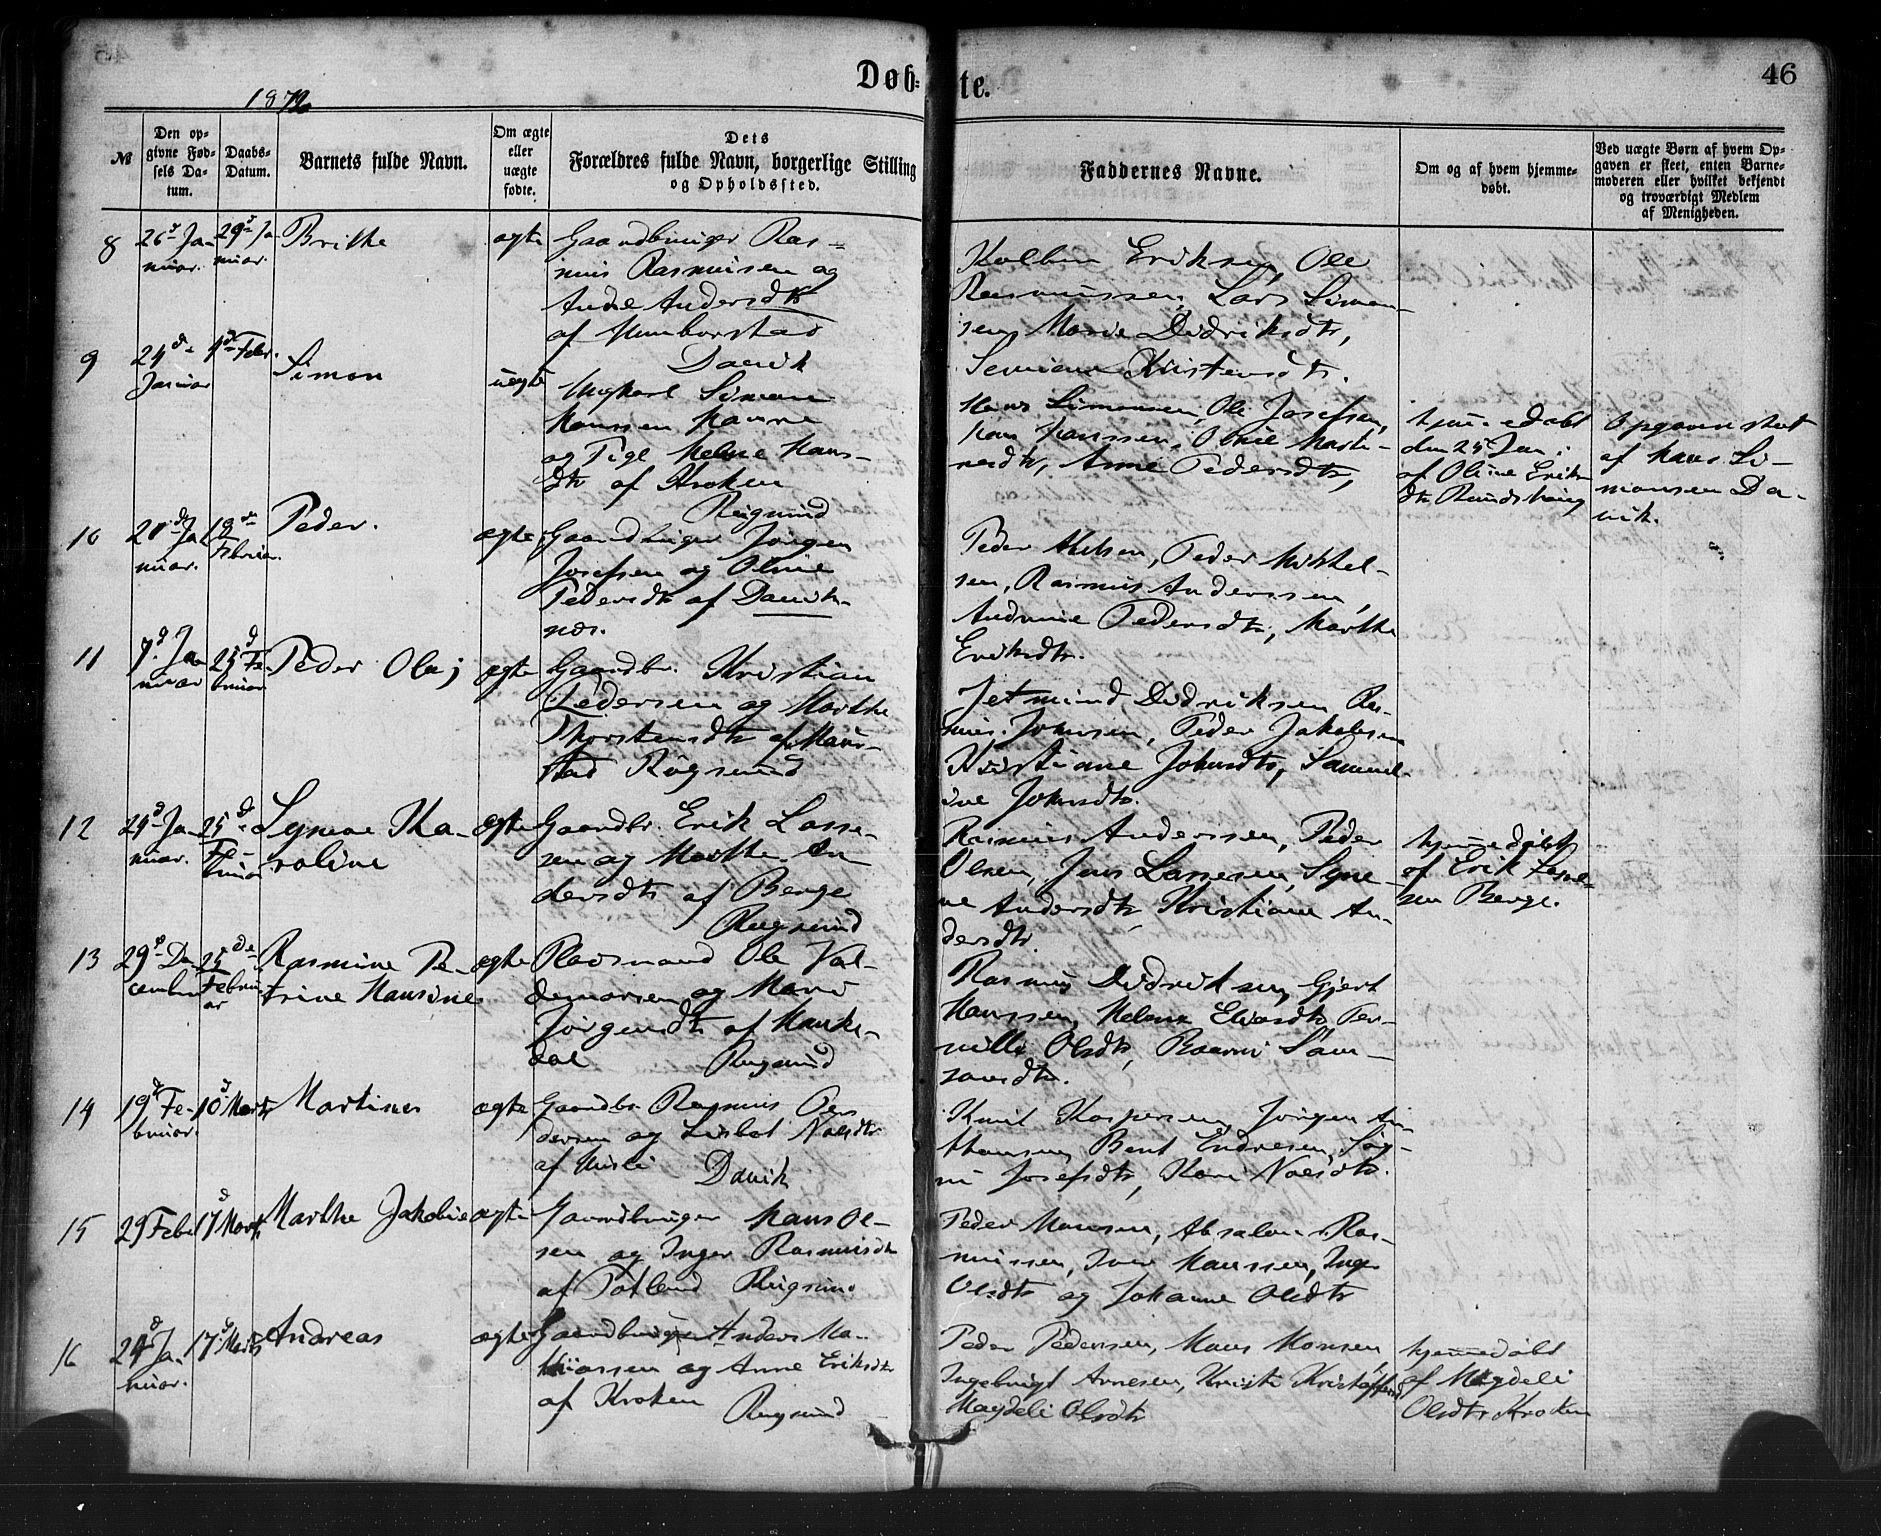 Døb=te.
46
1872
№
Den op=
givne Fød=
sels Da=
tum.
Daabs=
Datum.
Barnets fulde Navn.
Om ægte
eller
uægte
fødte.
Dets
Forældres fulde Navn, borgerlige Stilling
og Opholdssted.
Faddernes Navne.
Om og af hvem hjemme=
døbt.
Ved uægte Børn af hvem Op=
gaven er skeet, enten Barne=
moderen eller hvilket bekjendt
og troværdigt Medlem
af Menigheden.
8
26d Ja-
nuar.
29d Ja
nuar.
Brithe
ægte
Gaardbruger Ras-
mus Rasmusen og
Andersdtr
af
Davik
Kolbein Eriksen, Ole
Rasmussen, Lars Simon-
sen, Marie Didriksdtr,
Kristensdtr.
9
24d
Januar
4de Febr.
Simon
uægte
Ungkarl Simon
Hanssen Havne
og Pige Helene Hans-
dtr af Kroken
Rugsund
Hans Simonsen, Ole Josefsen,
Hans Hanssen, Oline Marti-
nsdtr, Anne Pedersdtr,
hjemmedøbt
den 25 Jan.
af Oline Eriks
dtr
Opgaven skeet
af Hans Si-
monsen Da-
vik.
10
Ja
nuar.
18de
Februar.
Peder.
ægte
Gaardbruger Jørgen
Josefsen og Oline
Pedersdtr af Davik-
næs.
Peder Nilsen, Peder Mikkel-
sen, Rasmus Anderssen,
Andrine Pedersdtr, Marthe
Eriksdtr.
11
7d Ja
nuar
25d Fe
bruar
Peder Olaj
ægte
Gaardbr. Kristian
Pedersen og Marthe
Thorstensdtr af Maur-
stad Rugsund
Jetmund Didriksen Ras-
mus Johnsen, Peder Jakobsen
Kristiane Johnsdtr, Sammel-
ine Johnsdtr.
12
29d Ja-
nuar.
25de
Fe-
bruar
Synneve Ka-
roline
ægte
Gaardbr. Erik Lasse-
sen og Marthe An
dersdtr af Berge
Rugsund
Rasmus Anderssen, Peder
Olsen, Jens Lassesen, Syne-
ve Andersdtr, Kristiane An-
dersdtr.
hjemmedøbt
af Erik Lasse-
sen Berge.
13
29d De-
cember
25de
Febru-
ar
Rasmine Pe-
trine Hansine
ægte
Pladsmand Ole Val-
demarsen og Mari
Jørgensdtr af Hauke-
dal Rugsund
Rasmus Didriksen, Gjert
Hanssen, Helene Eliasdtr, Per-
nille Olsdtr, Sam-
sonsdtr.
14
19d Fe-
bruar.
10d Marts
Martinus
ægte
Gaardbr. Rasmus Pe-
dersen og Lisbet Noesdtr
af
Davik
Knut Kaspersen, Jørgen An-
thonsen, Bent Endresen, Sig-
ni Josefsdtr, Kari Noesdtr.
15
29 Febr
17d Marts
Marthe Jakobine
ægte
Gaardbruger Hans Ol-
sen og Inger Rasmusdtr
af Totland Rugsund
Peder Monsen, Absalon Ras-
mussen, Iver Hanssen, Inger
Olsdtr og Johanne Olsdtr
16
24d Ja-
nuar.
17d Marts
Andreas
ægte
Gaardbruger Anders Ma-
thiassen og Anne Eriksdtr
af Kroken
Rugsund
Peder Pedersen, Hans Monsen,
Ingebrigt Arnesen, Kristi Kristoffersd
Magdeli Olsdtr
hjemmedøbt
af Magdeli
Olsdtr Kroken